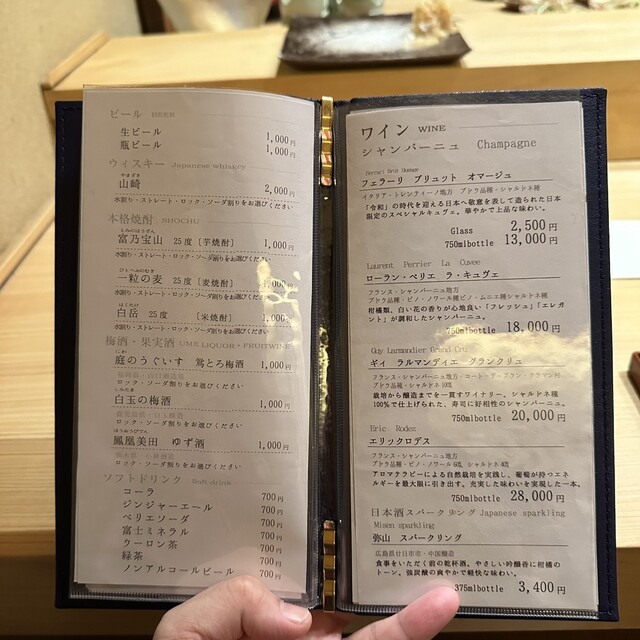 ビール BEER
生ビール 1,000円
瓶ビール 1,000円
ウィスキー Japanese whiskey
やまざき
山崎 2,000円
水割り・ストレート・ロック・ソーダ割りをお選びください
本格焼酎 SHOCHU
とみのほうざん
富乃宝山 25度 [芋焼酎] 1,000円
水割り・ストレート・ロック・ソーダ割りをお選びください
ひとつぶのむぎ
一粒の麦 25度 [麦焼酎] 1,000円
水割り・ストレート・ロック・ソーダ割りをお選びください
はくたけ
白岳 25度 [米焼酎] 1,000円
水割り・ストレート・ロック・ソーダ割りをお選びください
梅酒・果実酒 UME LIQUOR・FRUITWINE
にわ
庭のうぐいす 鶯とろ梅酒 1,000円
ロック・ソーダ割りをお選びください
しらたま
白玉の梅酒 1,000円
ロック・ソーダ割りをお選びください
ほうおうびでん
鳳凰美田 ゆず酒 1,000円
栃木県・小林酒造
ロック・ソーダ割りをお選びください
ソフトドリンク Soft drink
コーラ 700円
ジンジャーエール 700円
ペリエソーダ 700円
富士ミネラル 700円
ウーロン茶 700円
緑茶 700円
ノンアルコールビール 700円
ワイン WINE
シャンパーニュ Champagne
フェラーリ ブリュット オマージュ
イタリア・トレンティーノ地方 ブドウ品種・シャルドネ種
「令和」の時代を迎える日本へ敬意を表して造られた日本
限定のスペシャルキュヴェ。華やかで上品な味わい。
Glass 2,500円
750mlbottle 13,000円
Laurent Perrier La Cuvee
ローラン・ペリエ ラ・キュヴェ
フランス・シャンパーニュ地方
ブドウ品種・ピノ・ノワール種ピノ・ムニエ種シャルドネ種
柑橘類、白い花の香りが心地良い「フレッシュ」「エレガ
ント」が調和したシャンパーニュ。
750mlbottle 18,000円
Guy Larmandier Grand Cru
ギィ ラルマンディエ グランクリュ
フランス・シャンパーニュ地方・コート・デ・ブラン・クラマン村
ブドウ品種・シャルドネ 100%
栽培から醸造までを一貫すワイナリー、シャルドネ種
100%で仕上げられた、寿司に好相性のシャンパーニュ。
750mlbottle 20,000円
Eric Rodez
エリックロデス
フランス・シャンパーニュ地方
ブドウ品種・ピノ・ノワール 60%, シャルドネ 40%
アロマテラピーによる自然栽培を実践し、葡萄が持つエネ
ルギーを最大限に引き出す。充実した味わいを実現した一本。
750mlbottle 28,000円
日本酒スパークリング Japanese sparkling
Misen sparkling
弥山 スパークリング
広島県廿日市市・中国醸造
食事をいただく前の乾杯酒、やさしい吟醸香に柑橘の
トーン。強炭酸の爽やかで軽快な味わい。
375mlbottle 3,400円